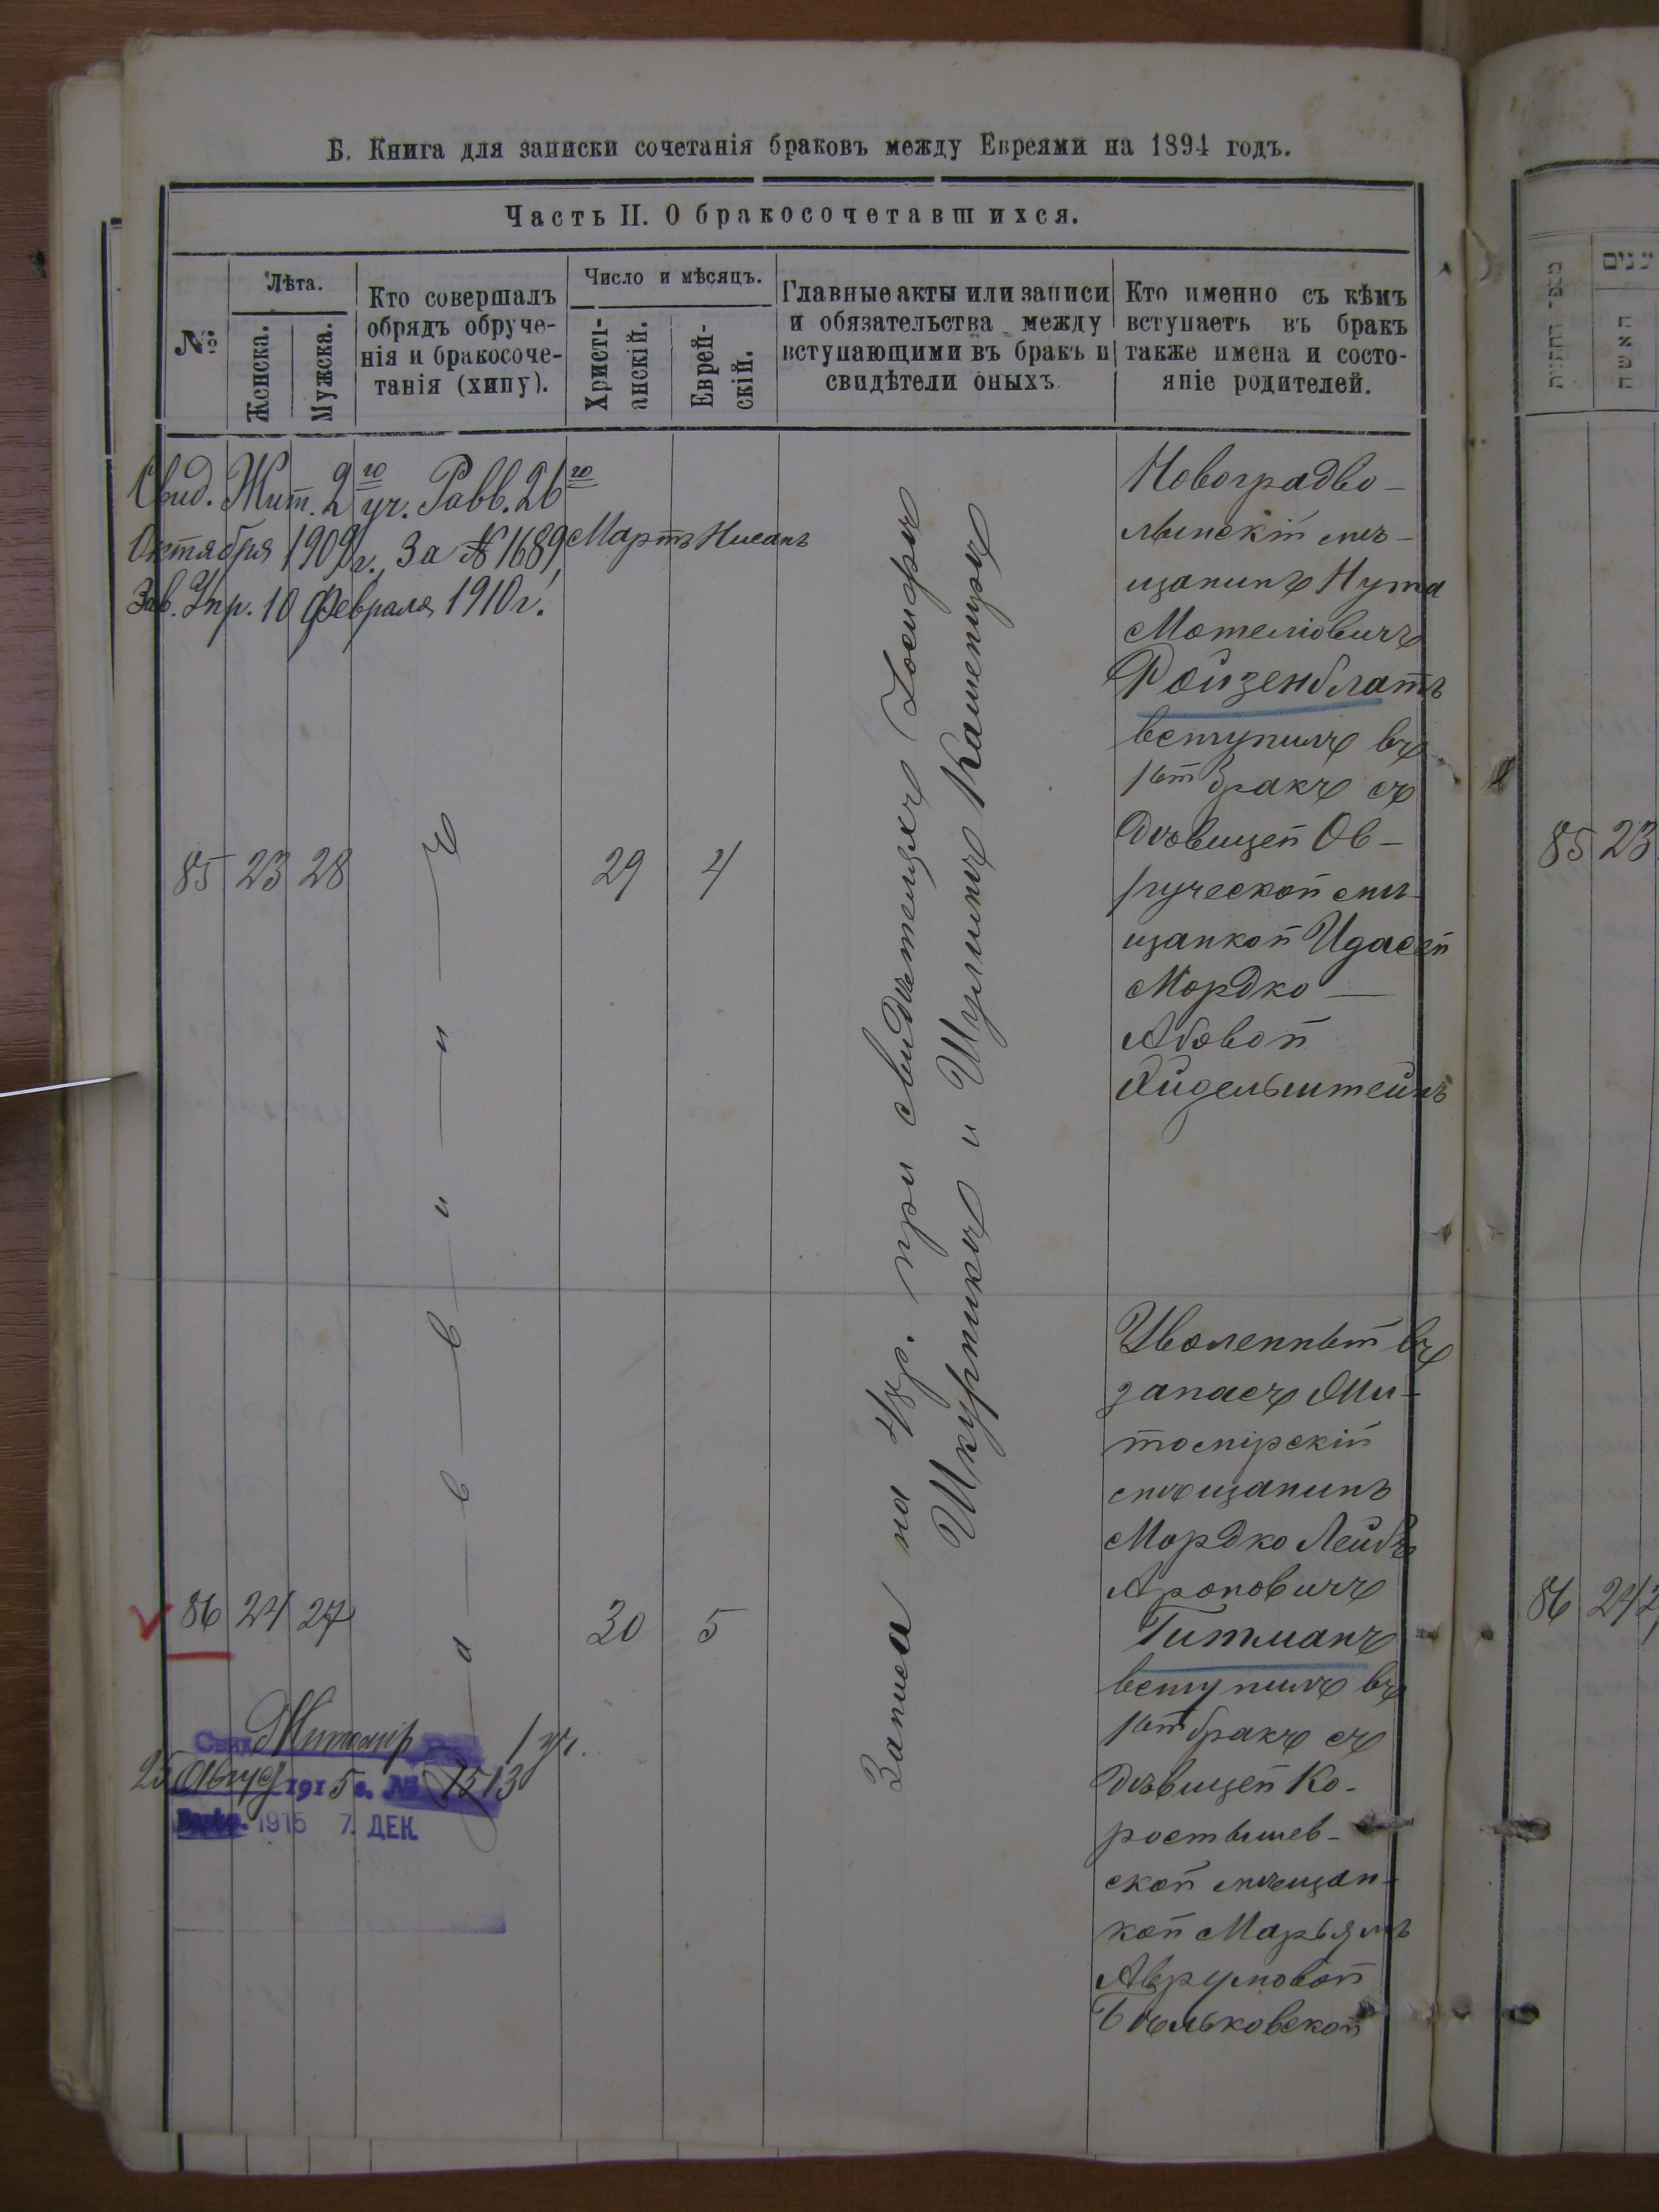 Б. Книга для записки сочетанія браковъ между Евреями на 1894 годъ.
Часть II. О бракосочетавшихся.
№
Лѣта.
Женска.
Мужска.
Кто совершалъ
обрядъ обруче-
нія и бракосоче-
танія (хипу).
Число и мѣсяцъ.
Христі-
анскій.
Еврей-
скій.
Главные акты или записи
и обязательства между
вступающими въ бракъ и
свидѣтели оныхъ.
Кто именно съ кѣмъ
вступаетъ въ бракъ
также имена и состо-
яніе родителей.
Свид. Жит. 2го уч. Равв. 26го
Октября 1909 г., за № 1689,
Зав. Упр. 10 Февраля 1910 г.
Мартъ Нисанъ
85 23 28
29 4
Раввинъ
Запись на 48р. при свидѣтеляхъ Іосифѣ
Шкурникѣ и Шулимѣ Каменирѣ
Новоградво-
лынскій мѣ-
щанинъ Нута
Мотеліовичъ
Ройзенблатъ
вступилъ въ
1ый бракъ съ
дѣвицей Ов-
ручской мѣ-
щанкой Идасей
Мордко —
Абовой
Эйдельштейнъ
86 24 27
30 5
Уволенный въ
запасъ Жи-
томірскій
мѣщанинъ
Мордко Лейбъ
Ароновичъ
Гитманъ
вступилъ въ
1ый бракъ съ
дѣвицей Ко-
ростышев-
ской мѣщан-
кой Марьямъ
Аврумовой
Бѣльковской
Свид. Житомір Рав. 1 уч.
25 Август 1915 г. № 1513
1915 7. ДЕК.
עננים
האשה
85 23
86 24